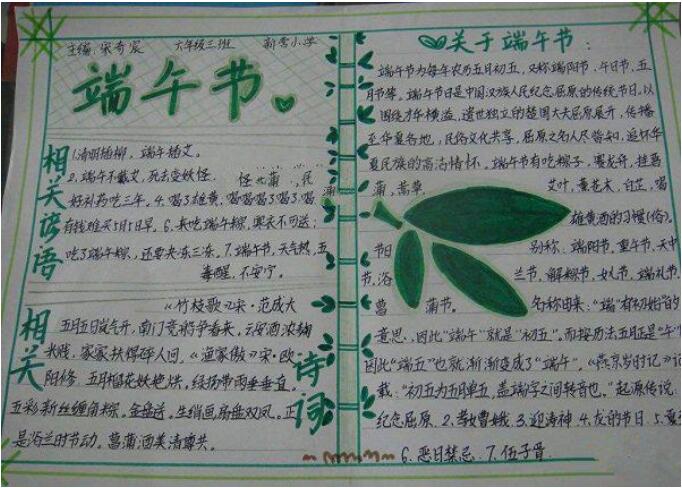 主编:宋奇宸 六年级三班 新雪小学
端午节
相关谚语
1.清明插柳,端午插艾。
2.端午不戴艾,死去变妖怪。
好补药吃三年。4.喝了雄黄
有钱难买5月5日早。6.未吃端午粽,寒衣不可送;
吃了端午粽,还要冻三冻。7.端午节,天气热,五
毒醒,不安宁。
相关诗词
《竹枝歌》宋·范成大
五月五日岚气开,南门竞船争看来。云安酒浓麹
米贱,家家扶得醉人回。《渔家傲》宋·欧
阳修 五月榴花妖艳烘。绿杨带雨垂垂重。
五彩新丝缠角粽。金盘送。生绡画扇盘双凤。正
是浴兰时节动。菖蒲酒美清尊共。
关于端午节:
端午节为每年农历五月初五,又称端阳节、午日节、五
月节等。端午节日是中国汉族人民纪念屈原的传统节日,以
围绕才华横溢、遗世独立的楚国大夫屈原展开,传播
至华夏各地,民俗文化共享,屈原之名人尽皆知,追怀华
夏民族的高洁情怀。端午节有吃粽子,赛龙舟,挂菖
蒲、蒿草、艾叶,薰苍术、白芷,喝
雄黄酒的习惯(俗)。
别称:端阳节、重午节、天中
节、浴兰节、解粽节、女儿节、端礼节、
菖蒲节。
名称由来:“端”有初始的
意思,因此“端午”就是“初五”。而按历法五月正是“午”
因此“端五”也就渐渐变成了“端午”。《燕京岁时记》记
载:“初五为五月单五,盖端字之间转音也。”起源传说:
纪念屈原 2.孝女曹娥 3.迎涛神 4.龙的节日 5.夏
6.恶日禁忌 7.伍子胥